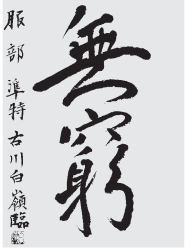 無窮
服部 準特 古川白嶺臨